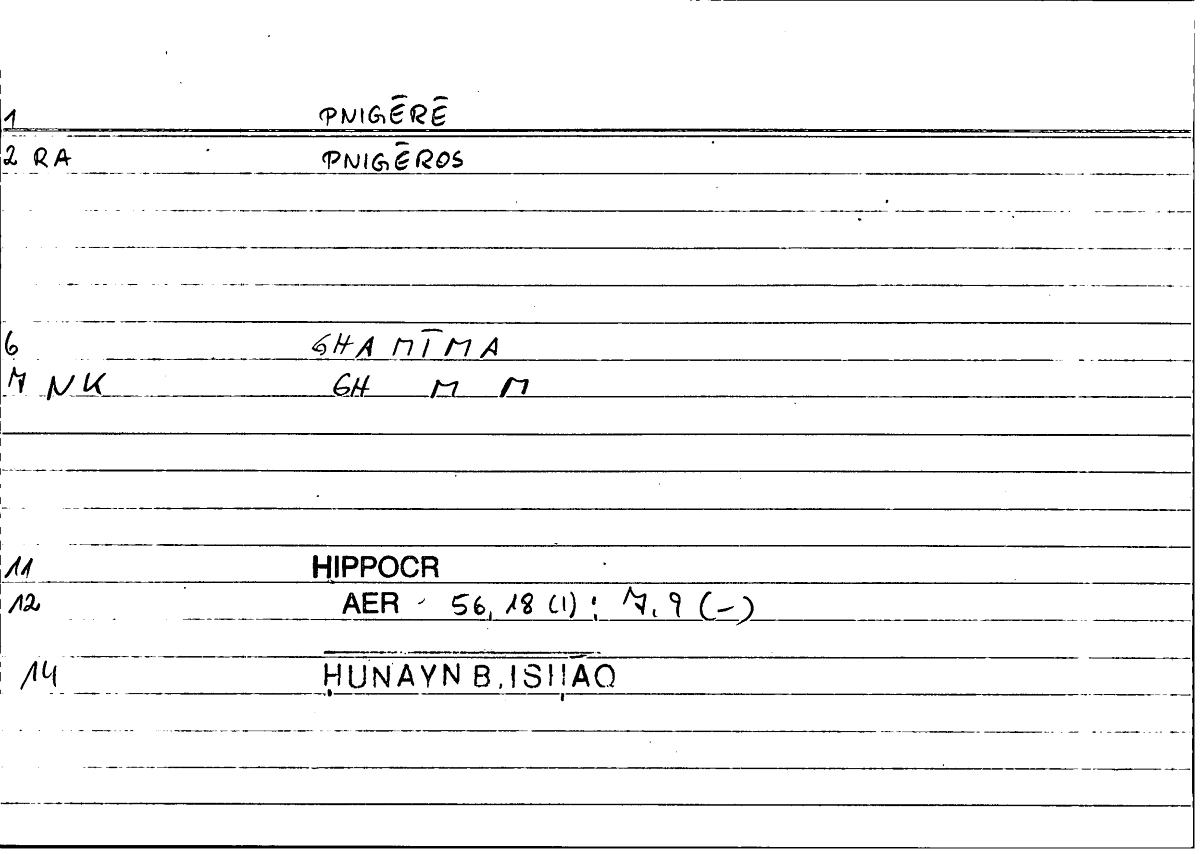 1 PNIGĒRĒ
2 RA PNIGĒROS
6 GHAMĪMA
7 NK GH M M
11 HIPPOCR
12 AER 56,18 (1) : 7,9 (-)
14 ḤUNAYN B. ISḤĀQ